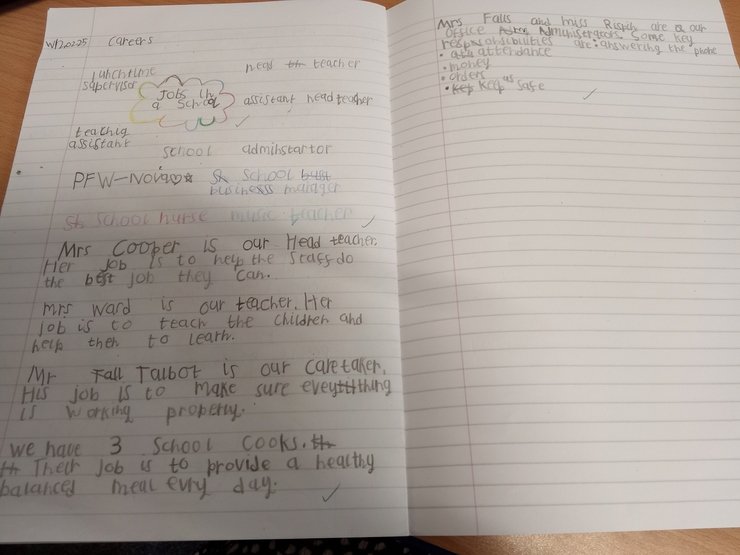 W12.02.25 Careers
lunchtime
supervisor
head teacher
Jobs in
a School
assistant head teacher
teachig
assistant
School adminstartor
PFW-Novia School
business manager
School nurse music teacher
Mrs Cooper is our Head teacher.
Her job is to help the staff do
the best job they can.
Mrs Ward is our teacher. Her
job is to teach the children and
help then to learn.
Mr Talbot is our caretaker.
His job is to make sure eveything
is working properly.
we have 3 School Cooks.
Their job is to provide a healthy
balanced meal evry day.
Mrs Falls and miss are our
office Administrators. Some key
responsibilities are: answering the phone
• attendance
• money
• orders
• Keep us safe